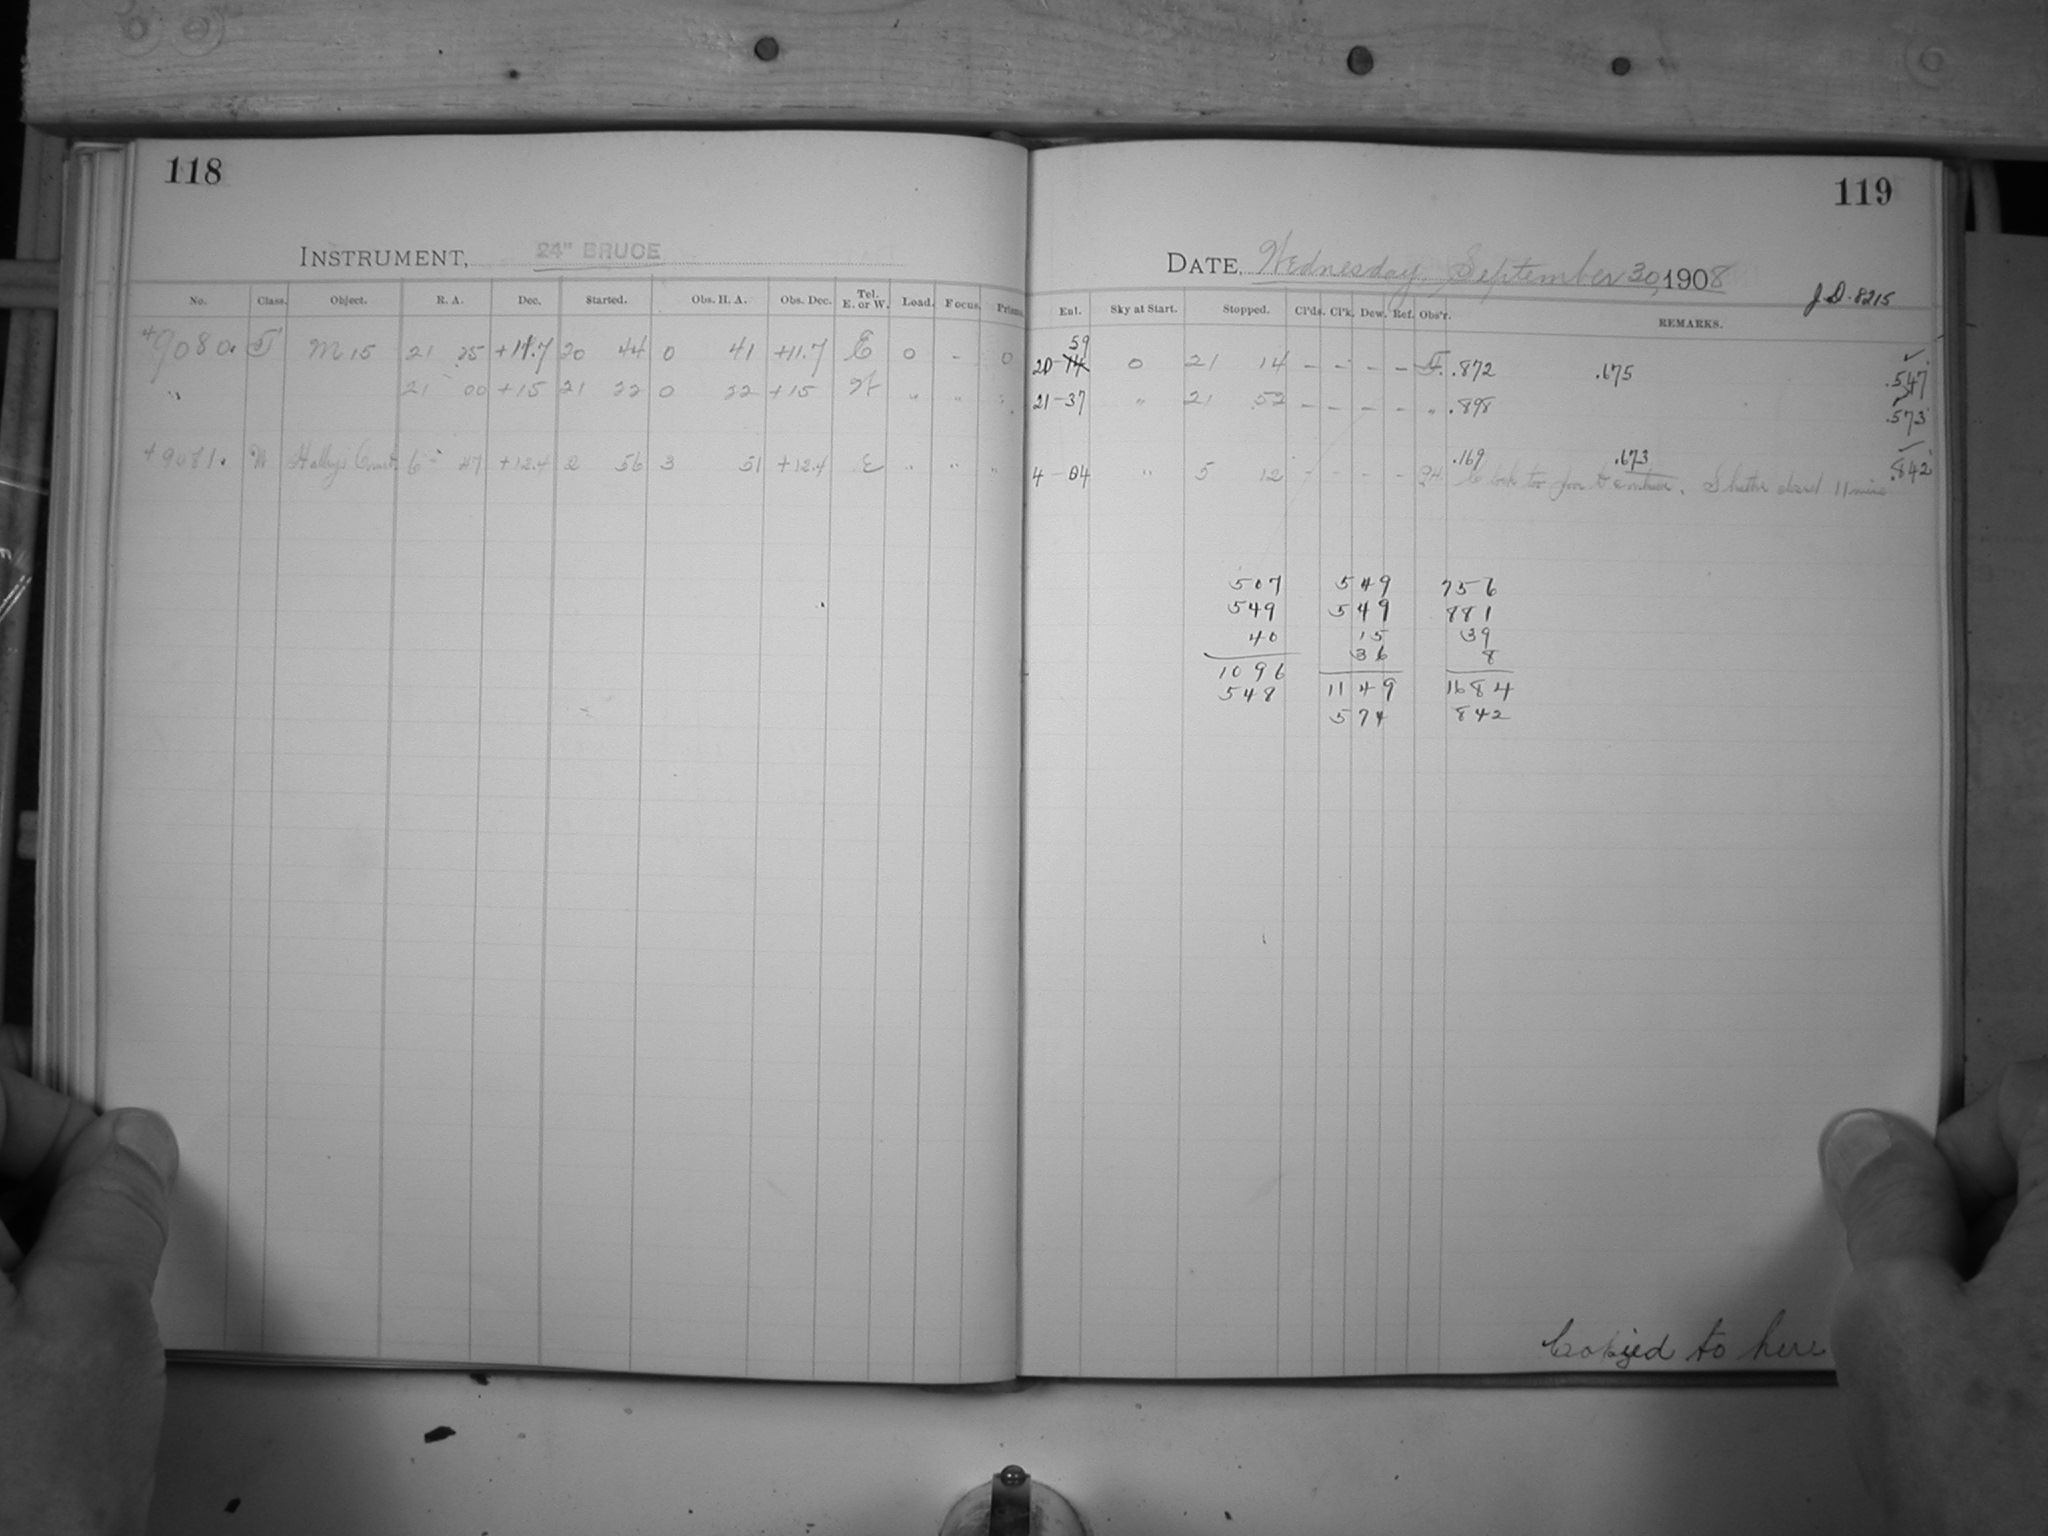 118
INSTRUMENT, 24" BRUCE
No. Class. Object. R. A. Dec. Started. Obs. H. A. Obs. Dec. Tel. E. or W. Load. Focus. Prisms.
+9080. M 15 21 25 +11.7 20 44 0 41 +11.7 E 0 - 0
" 21 00 +15 21 22 0 22 +15 W " " "
+9081. Halley's Comet 6 47 +12.4 2 56 3 51 +12.4 E " " "
119
DATE, Wednesday, September 30, 1908
J.D. 8215
Ent. Sky at Start. Stopped. Cl'ds. Cl'k. Dew. Ref. Obs'r. REMARKS.
59
20-14 0 21 14 - - - - .872 .675 .547
21-37 " 21 52 - - - - " .898 .573
.169 .673 .842
4-04 " 5 12 - - - - Shutter closed 11 mins
507 549 756
549 549 881
40 15 39
36 8
1096 1149 1684
548 574 842
Copied to here